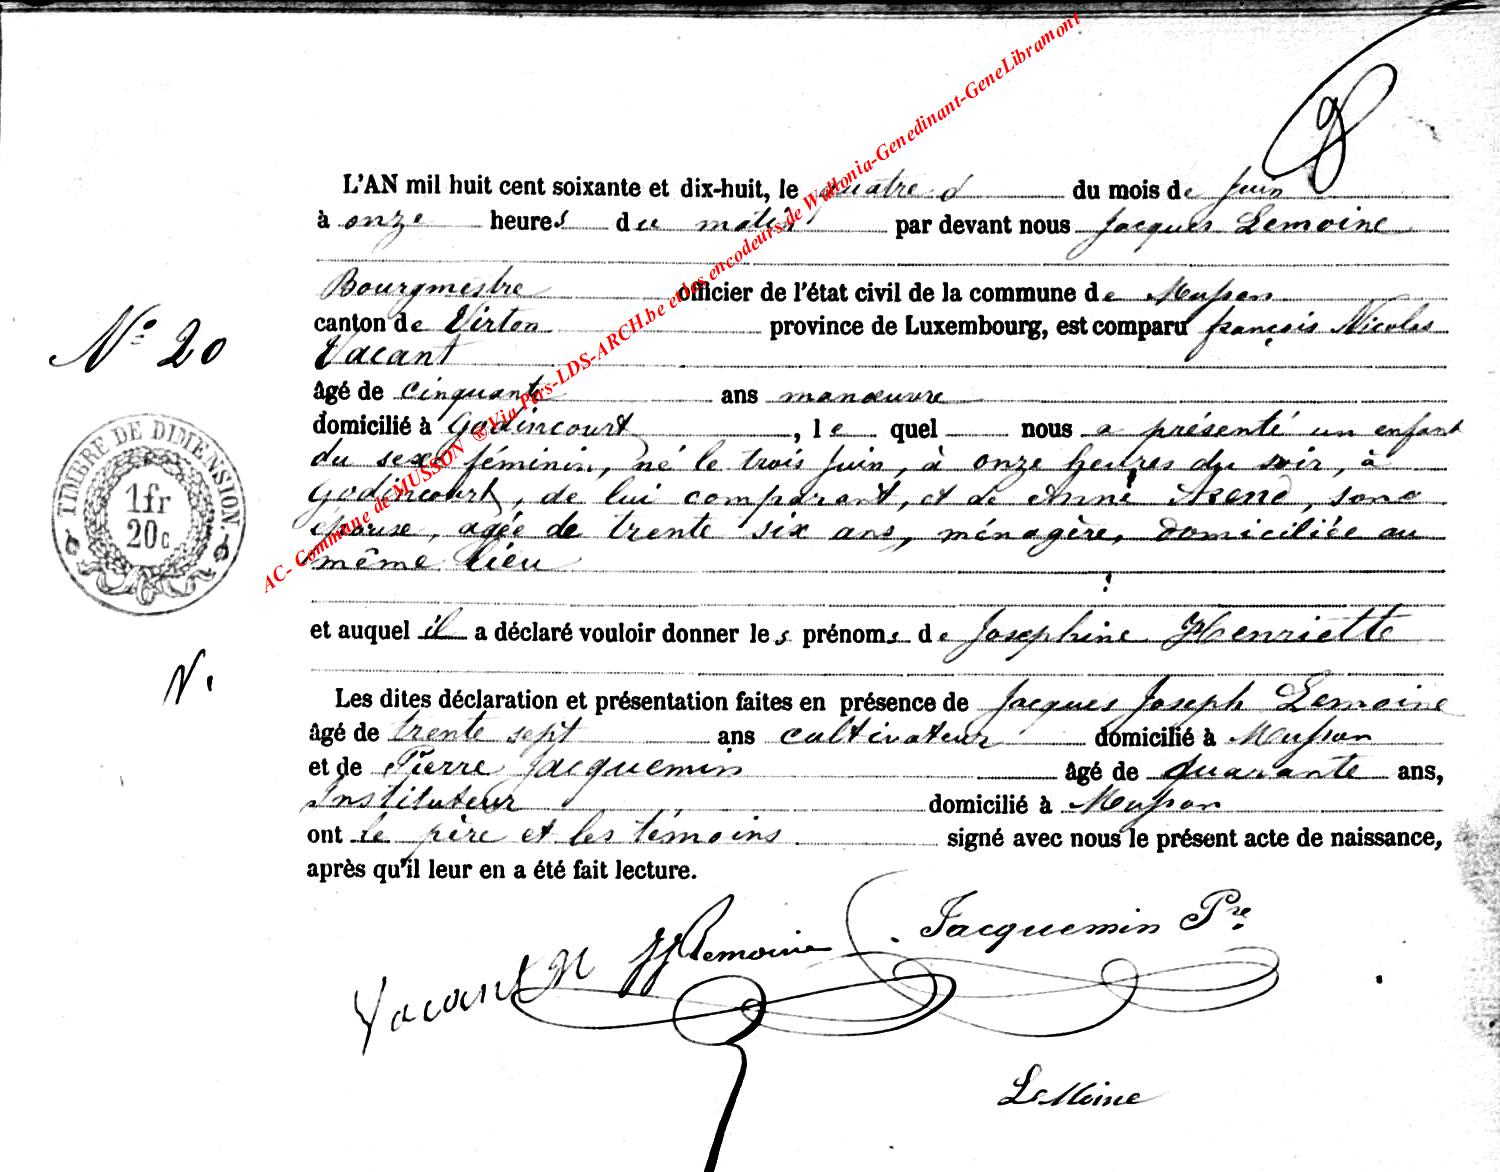 L'AN mil huit cent soixante et dix-huit, le quatre du mois de juin
à onze heures du matin par devant nous Jacques Lemoine
Bourgmestre officier de l'état civil de la commune de Musson
canton de Virton province de Luxembourg, est comparu françois Nicolas
Vacant
N° 20
âgé de cinquante ans manœuvre
domicilié à Godincourt, le quel nous a présenté un enfant
du sexe féminin, né le trois juin, à onze heures du soir, à
Godincourt, de lui comparant, et de Anne son
épouse, agée de trente six ans, ménagère, domiciliée au
même lieu
TIMBRE DE DIMENSION.
1fr
20c
et auquel il a déclaré vouloir donner les prénoms de Joséphine Henriette
N.
Les dites déclaration et présentation faites en présence de Jacques Joseph Lemoine
âgé de trente sept ans cultivateur domicilié à Musson
et de Pierre Jacquemin âgé de quarante ans,
Instituteur domicilié à Musson
ont le père et les témoins signé avec nous le présent acte de naissance,
après qu'il leur en a été fait lecture.
Vacant N JJ Lemoine Jacquemin Pre
LeMoine
AC- Commune de MUSSON ®Via Pers-LDS-ARCH.be et les encodeurs de Wallonia-Genedinant-GeneLibramont